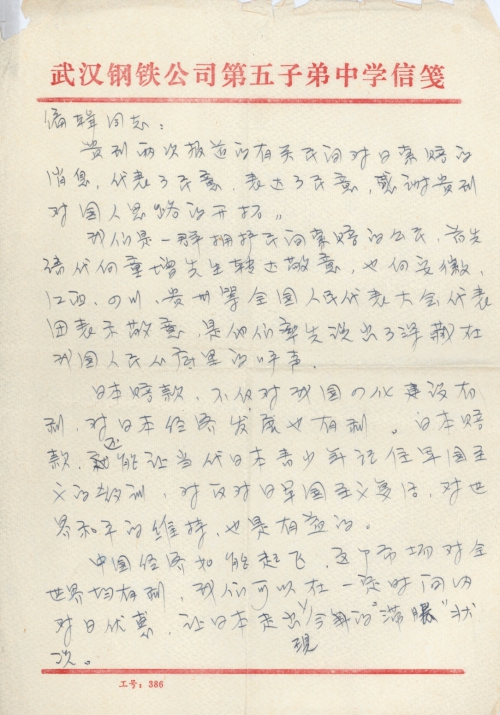 武汉钢铁公司第五子弟中学信笺
编辑同志：
贵刊两次报道的有关民间对日索赔的
消息，代表了民意，表达了民意，感谢贵刊
对国人思路的开拓。
我们是一群拥护民间索赔的公民，首先
请代向童增先生转达敬意，也向安徽、
江西、四川、贵州等全国人民代表大会代表
团表示敬意，是他们率先说出了深藏在
我国人民心底里的呼声。
日本赔款，不仅对我国四化建设有
利，对日本经济发展也有利。日本赔
款，还能让当代日本青少年记住军国主
义的教训，对反对日军国主义复活，对世
界和平的维持，也是有益的。
中国经济如能起飞，这个市场对全
世界均有利，我们可以在一定时间内
对日优惠，让日本走出现今的"滞胀"状
况。
工号：386